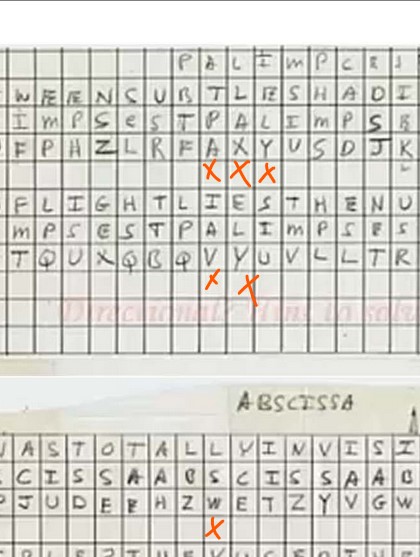 P A L I M P C E S
W E E N S U B T L E S H A D I
I M P S E S T P A L I M P S E
F P H Z L R F A X Y U S D J K
X X X
F L I G H T L I E S T H E N U
M P S E S T P A L I M P S E S
T Q U X Q B Q V Y U V L L T R
X X
ABSCISSA
W A S T O T A L L Y I N V I S I
C I S S A A B S C I S S A A B
J U D E E H Z W E T Z Y V G W
X